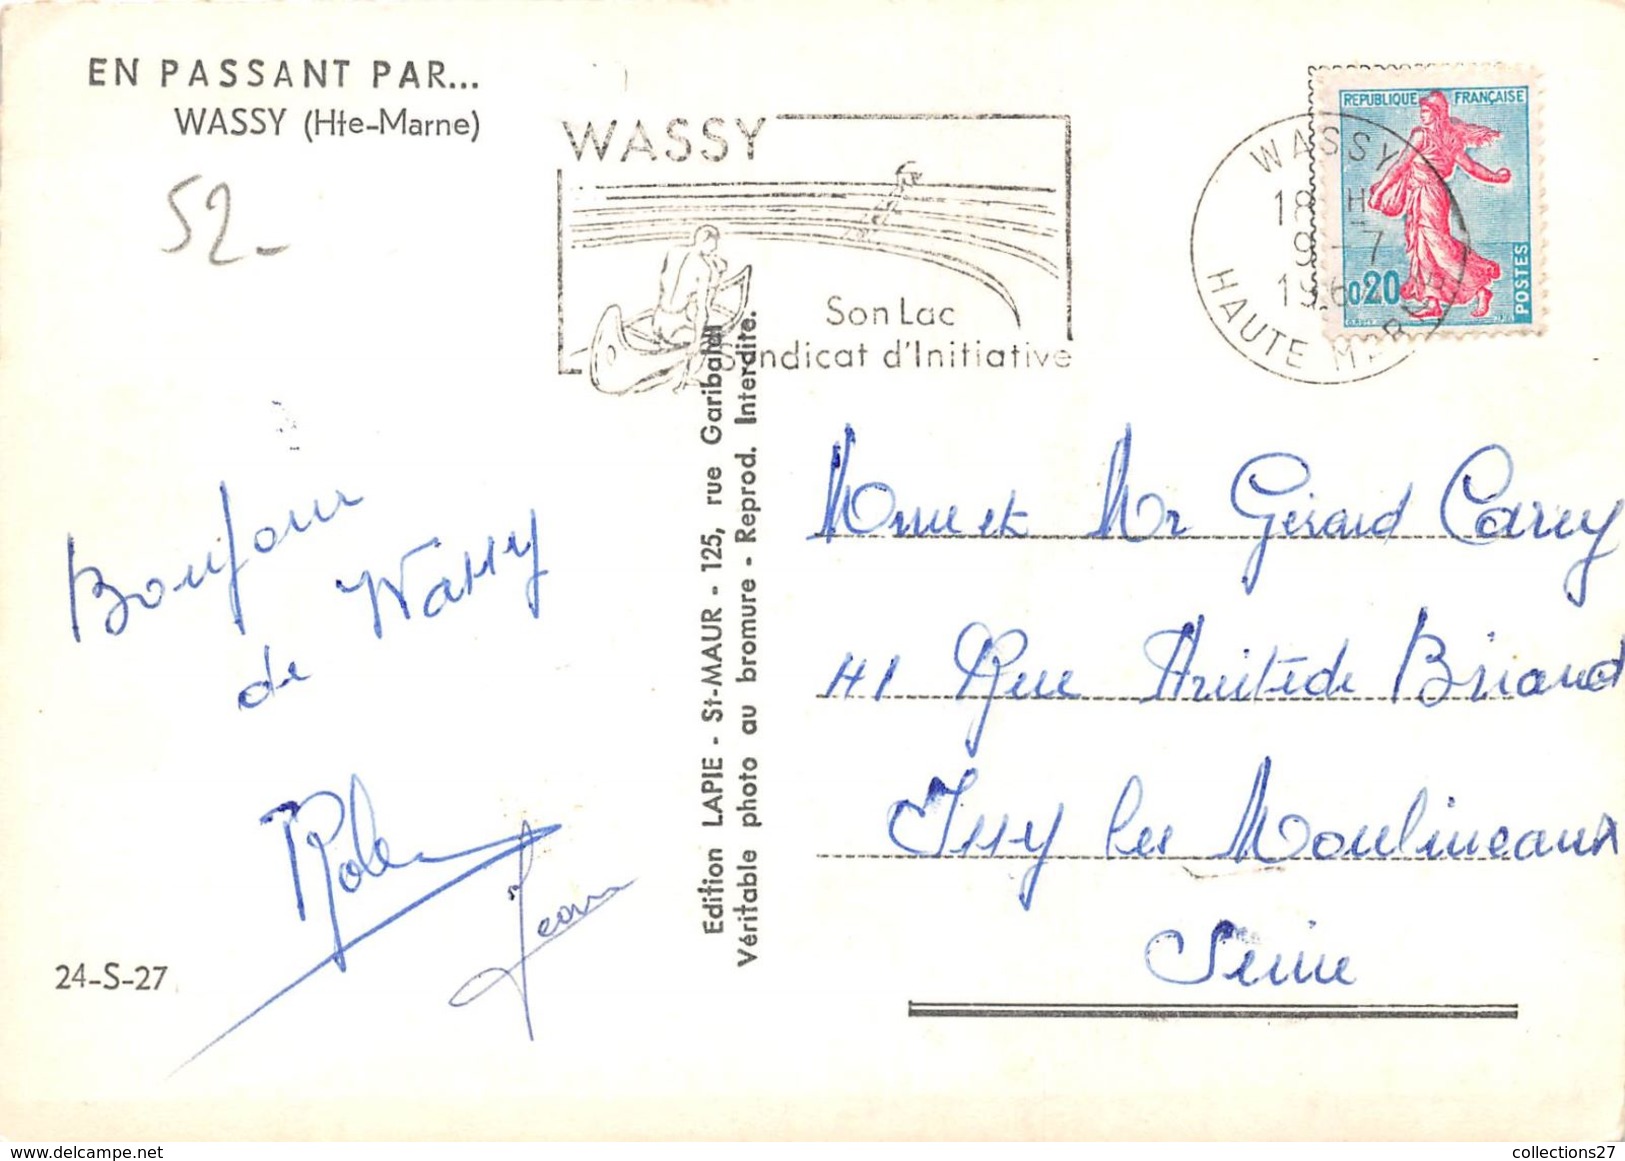 EN PASSANT PAR...
WASSY (Hte-Marne)
52-
WASSY
Son Lac
Syndicat d'Initiative
REPUBLIQUE FRANÇAISE
0,20
POSTES
WASSY
18 H
9 - 7
196
HAUTE MARNE
Bonjour
de Wassy
Jean
24-S-27
Edition LAPIE - St-MAUR - 125, rue Garibaldi
Véritable photo au bromure - Reprod. Interdite.
Mme et Mr Gérard Carey
41 Rue Aristide Briand
Issy les Moulineaux
Seine
delcampe.net
collections27